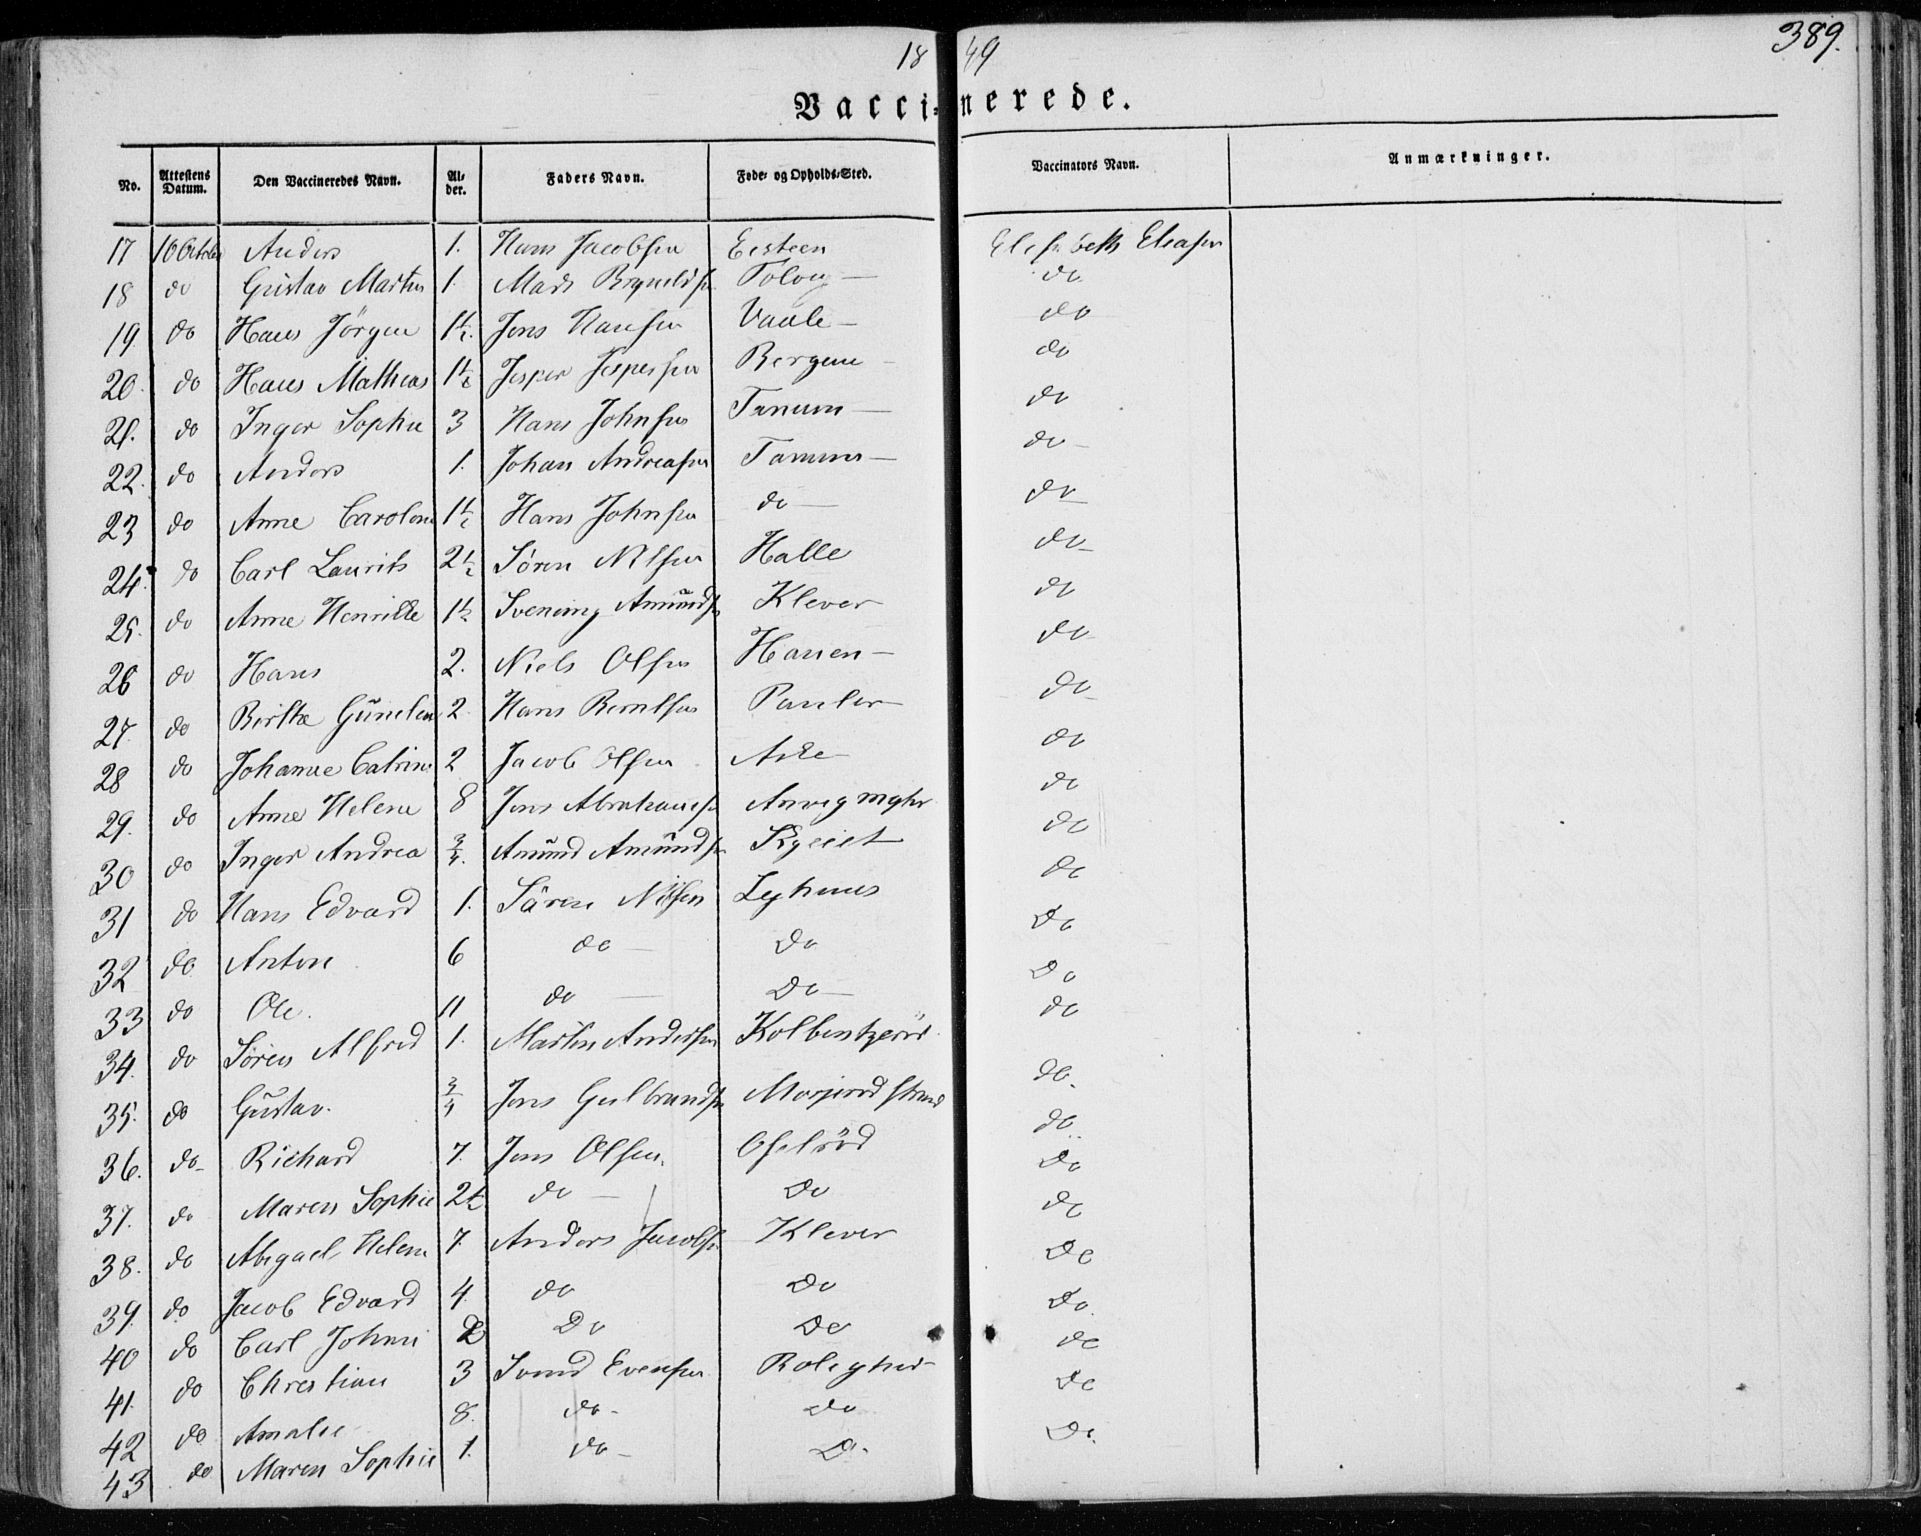 1849
389.
Vaccinerede.
No. Attestens Datum. Den Vaccineredes Navn. Alder. Faders Navn. Føde- og Opholds-Sted. Vaccinators Navn. Anmærkninger.
17 16 October Anders 1. Hans Jacobsen Eesteen Elisabeth Eliasen
18 do Gustav Martin 1. Mads do.
19 do Hans Jörgen 1½. Jens Hansen Vaule do
20. do Hans Mathias 1½ Jesper Jespersen Bergene do
21. do Inger Sophie 3 Hans Johnsen Tanum do
22. do Anders 1. Johan Andreasen Tanum do
23 do Anne Caroline 1½ Hans Johnsen do do
24. do Carl Laurits 2½ Sören Nilsen Halle do
25. do Anne Henrikke 1½ Svening Amunds Klever do
26 do Hans 2. Niels Olsen Hauen do
27. do Birthe Gunelia 2. Hans Berntsen Pauler do
28 do Johanne Catrine 2 Jacob Olsen Aske do
29. do Anne Helene 8 Jens Abrahams do
30 do Inger Andrea ¾. Amund Amunds do
31 do Hans Edvard 1. Sören Nilsen do
32 do Anton 6 do do do
33 do Ole. 11 do do do
34. do Sören Alfred 1. Martin Andersen do
35. do Gustav. ¾ Jens Gulbrands do.
36. do Richard 7. Jens Olsen. do
37. do Maren Sophie 2½ do do do
38. do Abigael Helene 7. Anders Jacobs Klever do
39. do Jacob Edvard 4. do do do
40 do Carl Johan 2 do do do.
41. do Christian 3 Svend Evensen Roligheed do
42 do Amalie 8. do do do
43 do Maren Sophie 1. do do. do.